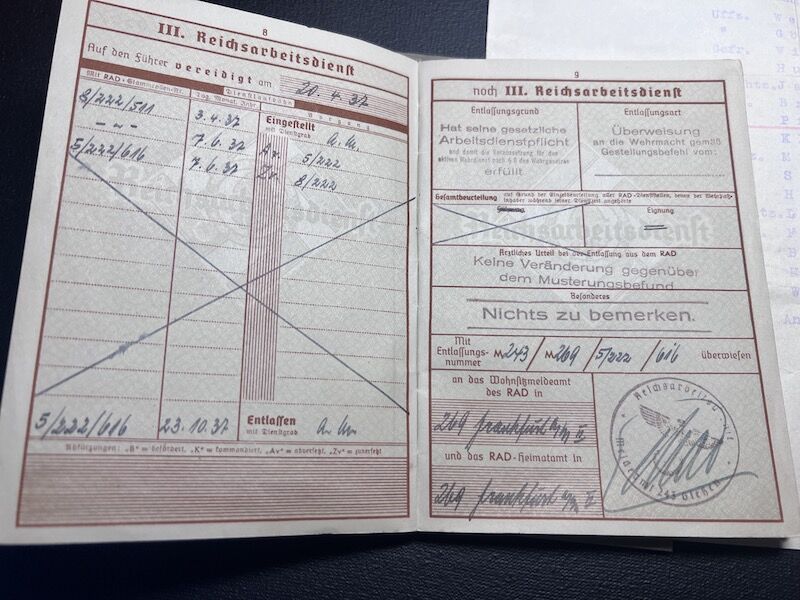 8
III. Reichsarbeitsdienst
Auf den Führer vereidigt am 20.4.37
Mit RAD-Stammrollen-Nr. Tag, Monat, Jahr Dienstlaufbahn Vorgang
8/222/511 3.4.37 Eingestellt mit Dienstgrad A. M.
- " - 7.6.37 Av. 5/222
5/222/616 7.6.37 Zv. 8/222
5/222/616 23.10.37 Entlassen mit Dienstgrad
Abkürzungen: „B“ = befördert, „K“ = kommandiert, „Av“ = abversetzt, „Zv“ = zuversetzt
9
noch III. Reichsarbeitsdienst
Entlassungsgrund
Hat seine gesetzliche
Arbeitsdienstpflicht
und damit die Voraussetzung für den
aktiven Wehrdienst nach § 8 des Wehrgesetzes
erfüllt
Entlassungsart
Überweisung
an die Wehrmacht gemäß
Gestellungsbefehl vom:
Gesamtbeurteilung auf Grund der Einzelbeurteilung aller RAD-Dienststellen, denen der Wehrpaß-
inhaber während seiner Dienstzeit angehörte
Eignung
Reichsarbeitsdienst
Ärztliches Urteil bei der Entlassung aus dem RAD
Keine Veränderung gegenüber
dem Musterungsbefund
Besonderes
Nichts zu bemerken.
Mit Entlassungs-nummer M243 / M269 / 5/222 / 616 überwiesen
an das Wohnsitzmeldeamt
des RAD in
269 Frankfurt a/M II
und das RAD-Heimatamt in
269 Frankfurt a/M II
Reichsarbeitsdienst
Meldeamt 243 Gießen
Uffz.
Gefr.